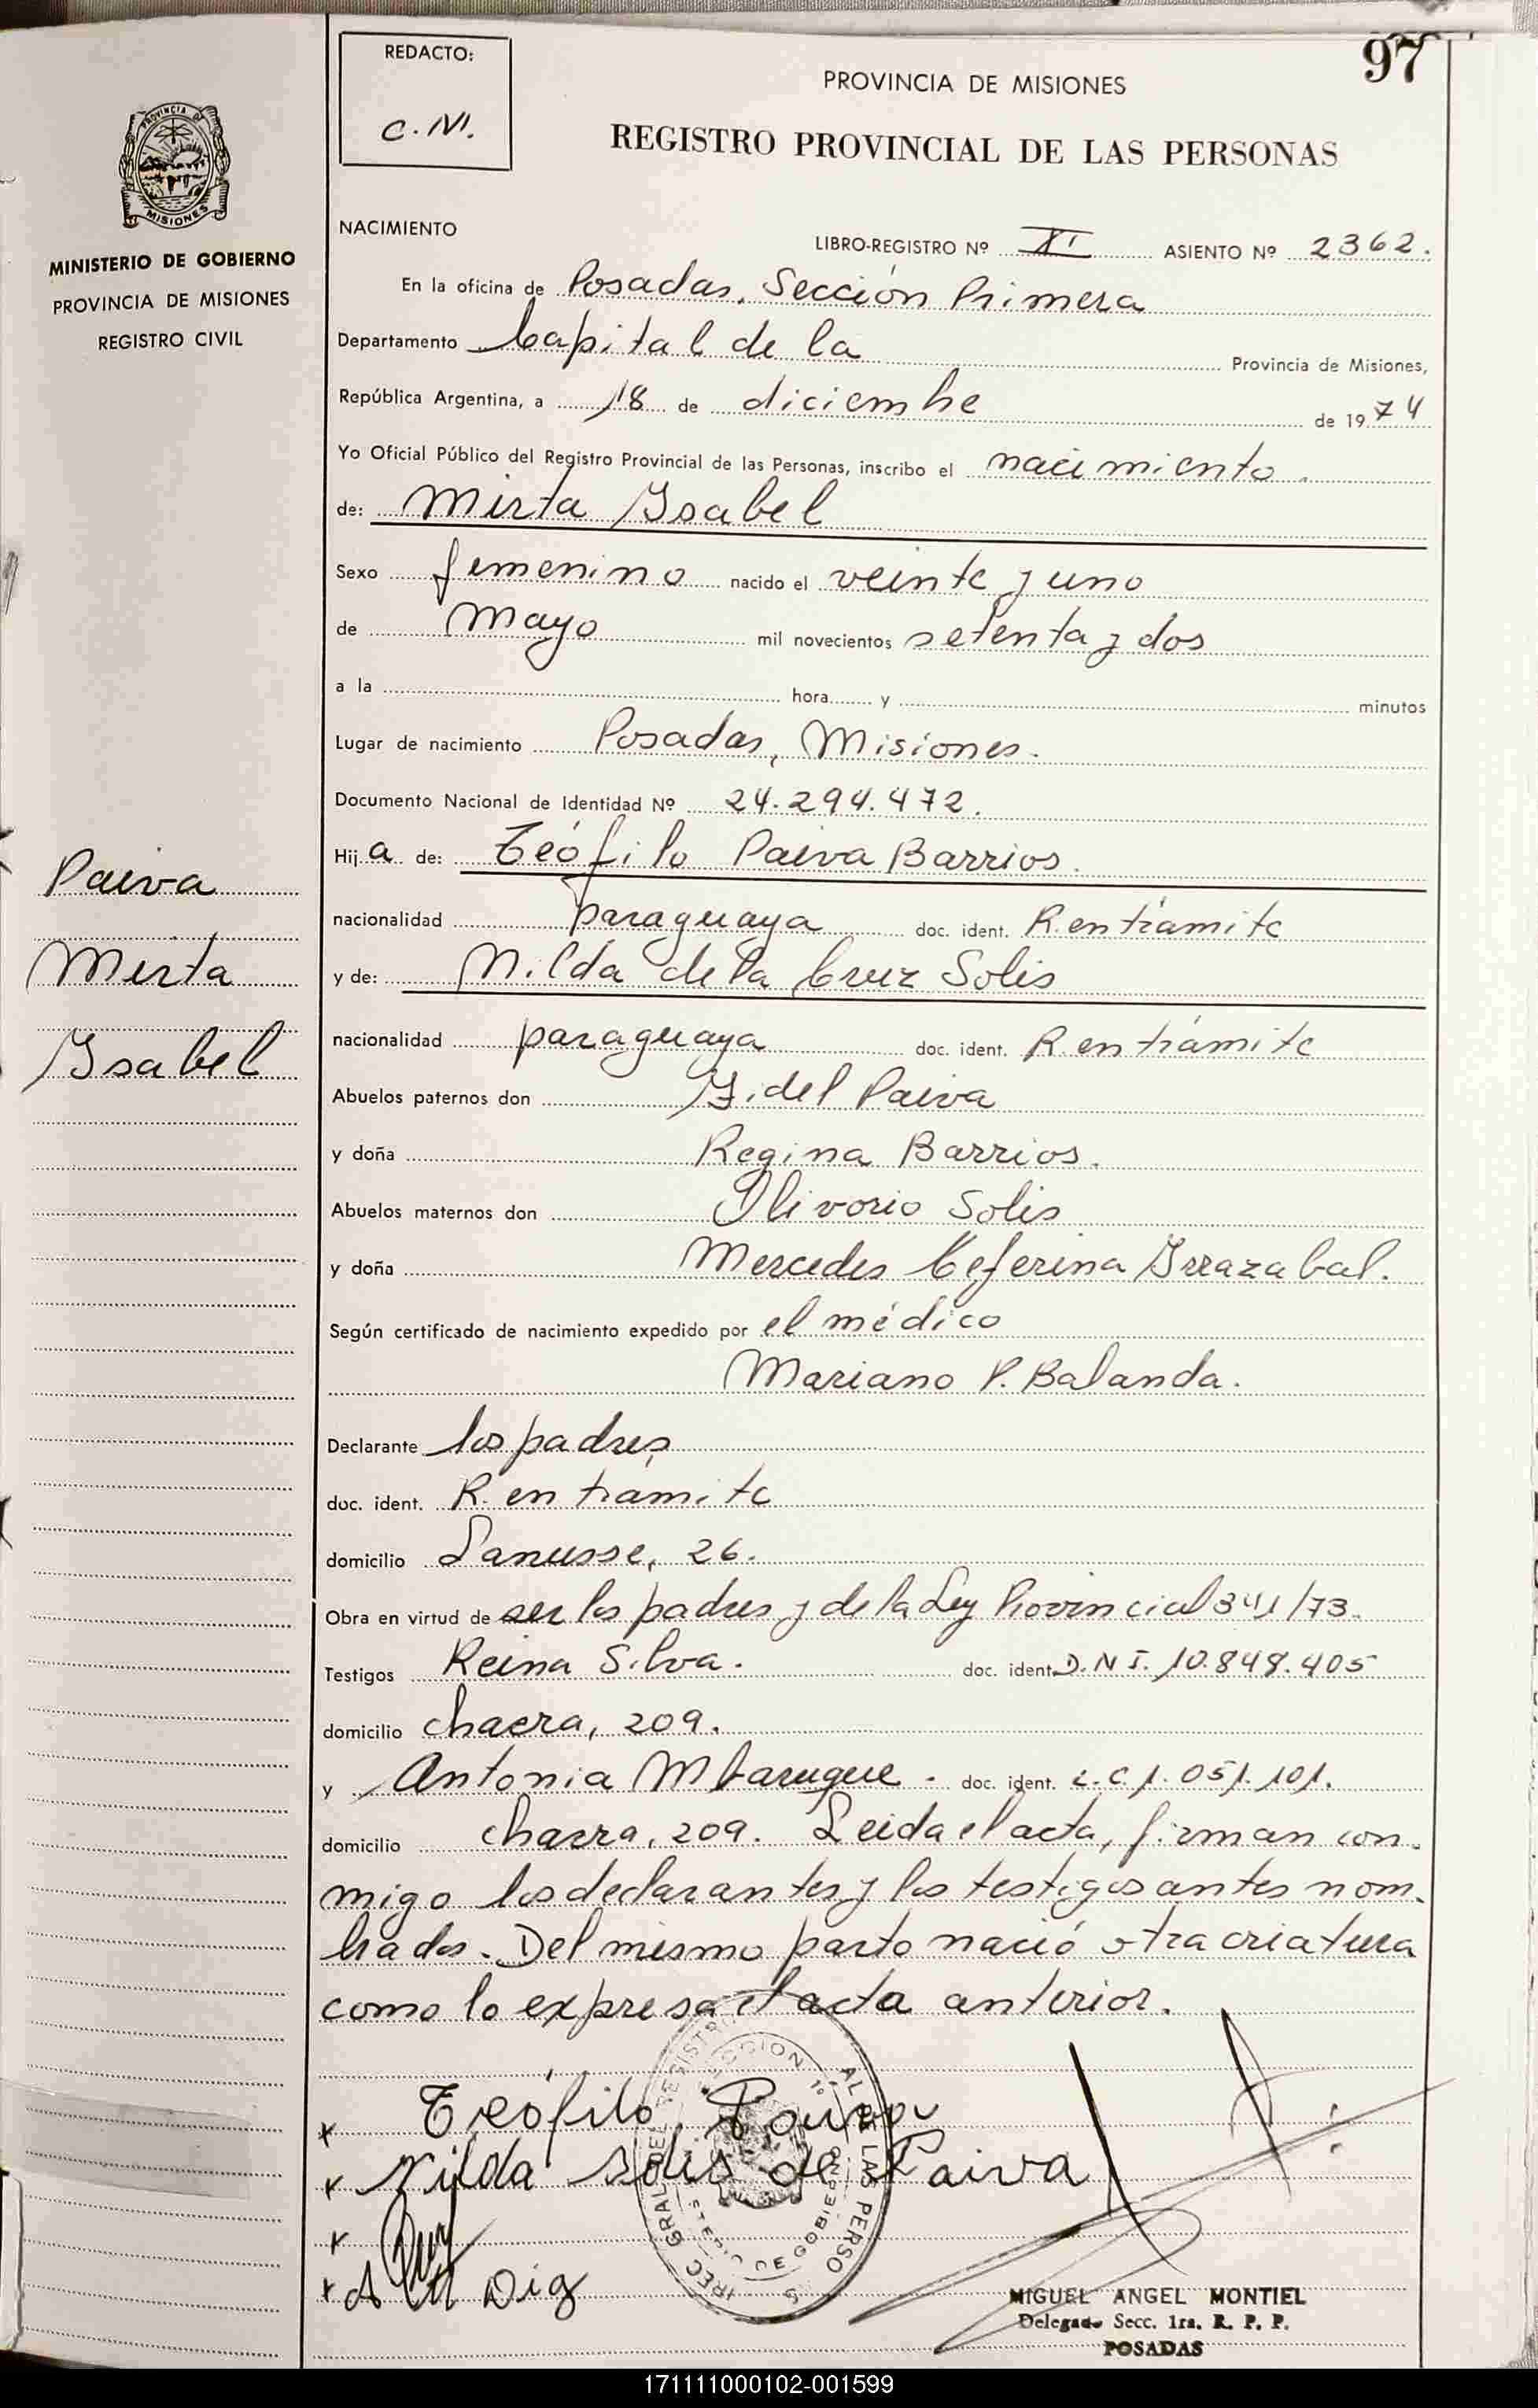 97
REDACTO:
PROVINCIA DE MISIONES
C.M.
REGISTRO PROVINCIAL DE LAS PERSONAS
PROVINCIA DE
MISIONES
MINISTERIO DE GOBIERNO
PROVINCIA DE MISIONES
REGISTRO CIVIL
NACIMIENTO
LIBRO-REGISTRO Nº XI ASIENTO Nº 2362.
En la oficina de Posadas. Sección Primera
Departamento Capital de la Provincia de Misiones,
República Argentina, a 18 de diciembre de 1974
Yo Oficial Público del Registro Provincial de las Personas, inscribo el nacimiento.
de: Mirta Ysabel
Sexo femenino nacido el veinte y uno
de mayo mil novecientos setenta y dos
a la hora y minutos
Lugar de nacimiento Posadas, Misiones.
Documento Nacional de Identidad Nº 24.294.472.
Hija de: Teófilo Paiva Barrios.
nacionalidad paraguaya doc. ident. R. en trámite
y de: Nilda de la Cruz Solis
nacionalidad paraguaya doc. ident. R en trámite
Paiva
Mirta
Ysabel
Abuelos paternos don Fidel Paiva
y doña Regina Barrios.
Abuelos maternos don Olivorio Solis
y doña Mercedes Ceferina Yrrazabal.
Según certificado de nacimiento expedido por el médico
Mariano P. Balanda.
Declarante los padres,
doc. ident. R. en trámite
domicilio Lanusse, 26.
Obra en virtud de ser los padres y de la Ley Provincial 341/73.
Testigos Reina Silva. doc. ident. D.N I. 10.848.405
domicilio chacra, 209.
y Antonia Mbarugue. doc. ident. L.C 1.051.101.
domicilio chacra, 209. Leida el acta, firman con-
migo los declarantes y los testigos antes nom-
brados. Del mismo parto nació otra criatura
como lo expresa el acta anterior.
x Teófilo Paiva
x Nilda solis de Paiva
x
x
MIGUEL ANGEL MONTIEL
Delegado Secc. 1ra. R. P. P.
POSADAS
171111000102-001599